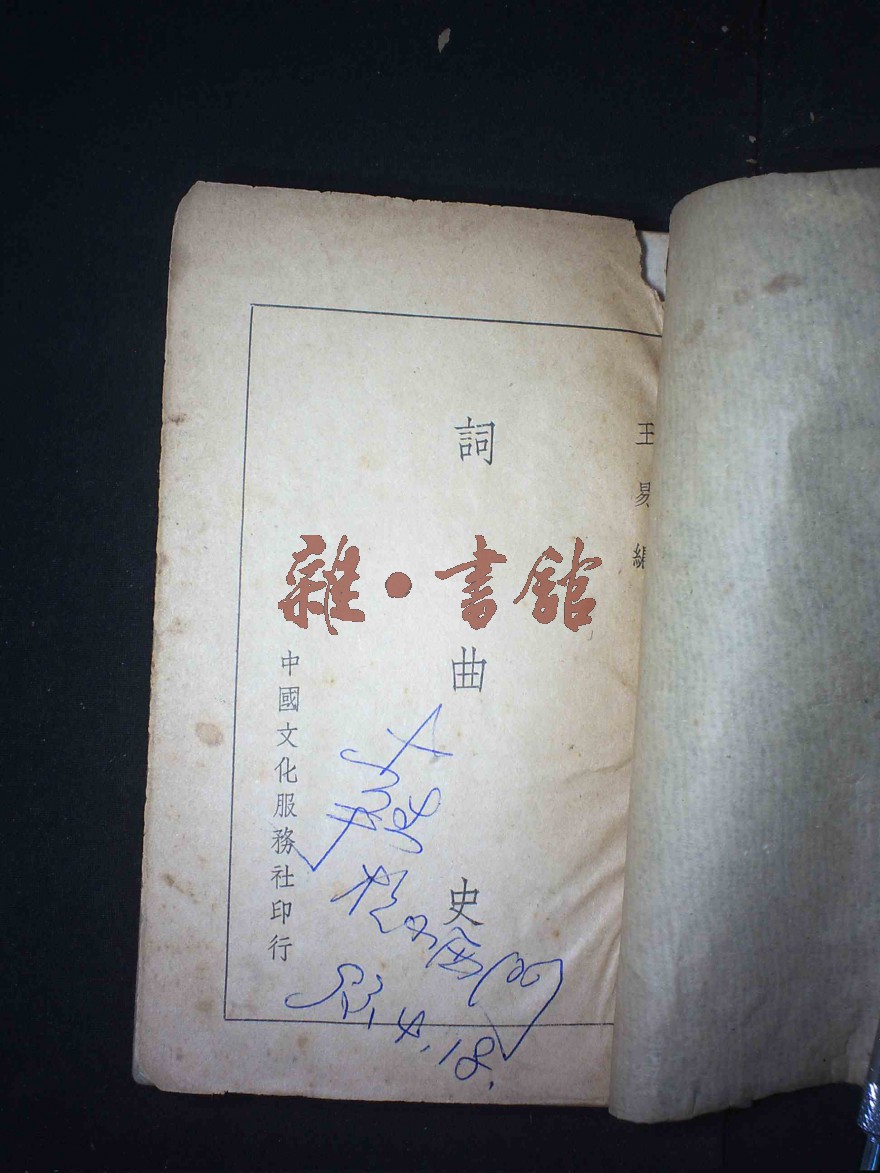 王易編
詞曲史
中國文化服務社印行
雜·書館
53.4.18.